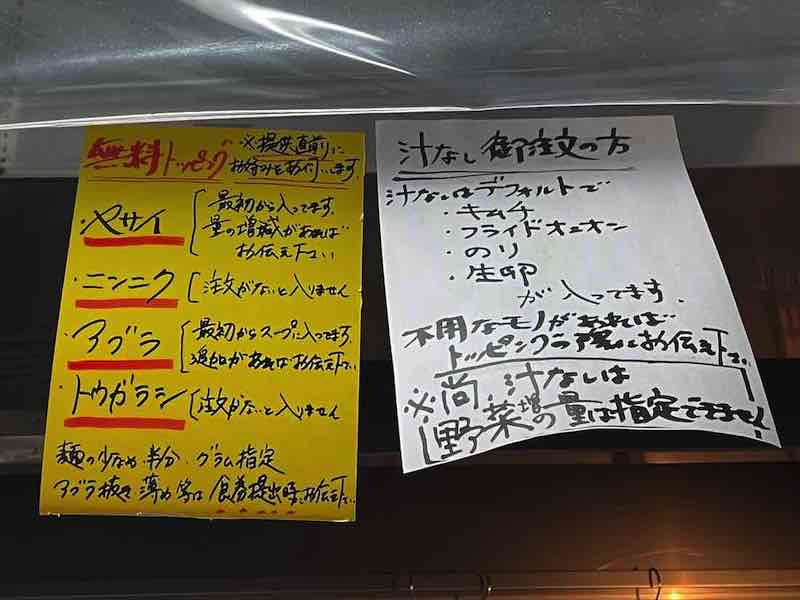 無料トッピング
※提供直前に
お好みをお伺いします。
・ヤサイ
最初から入ってます。
量の増減があれば
お伝え下さい
・ニンニク
注文がないと入りません
・アブラ
最初からスープに入ってます。
追加があればお伝え下さい。
・トウガラシ
注文がないと入りません
麺の少なめ、半分、グラム指定
アブラ抜き 薄め等は食券提出時にお伝え下さい。
汁なし御注文の方
汁なしはデフォルトで
・キムチ
・フライドオニオン
・のり
・生卵
が入ってます。
不用なモノがあれば
トッピングの際にお伝え下さい。
※尚 汁なしは
野菜増の量は指定できません